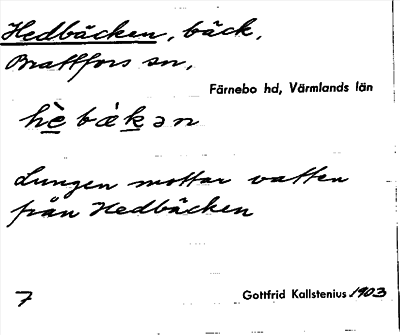 Hedbäcken, bäck,
Brattfors sn,
Färnebo hd, Värmlands län
hèbákən
Lungen mottar vatten
från Hedbäcken
7
Gottfrid Kallstenius 1903